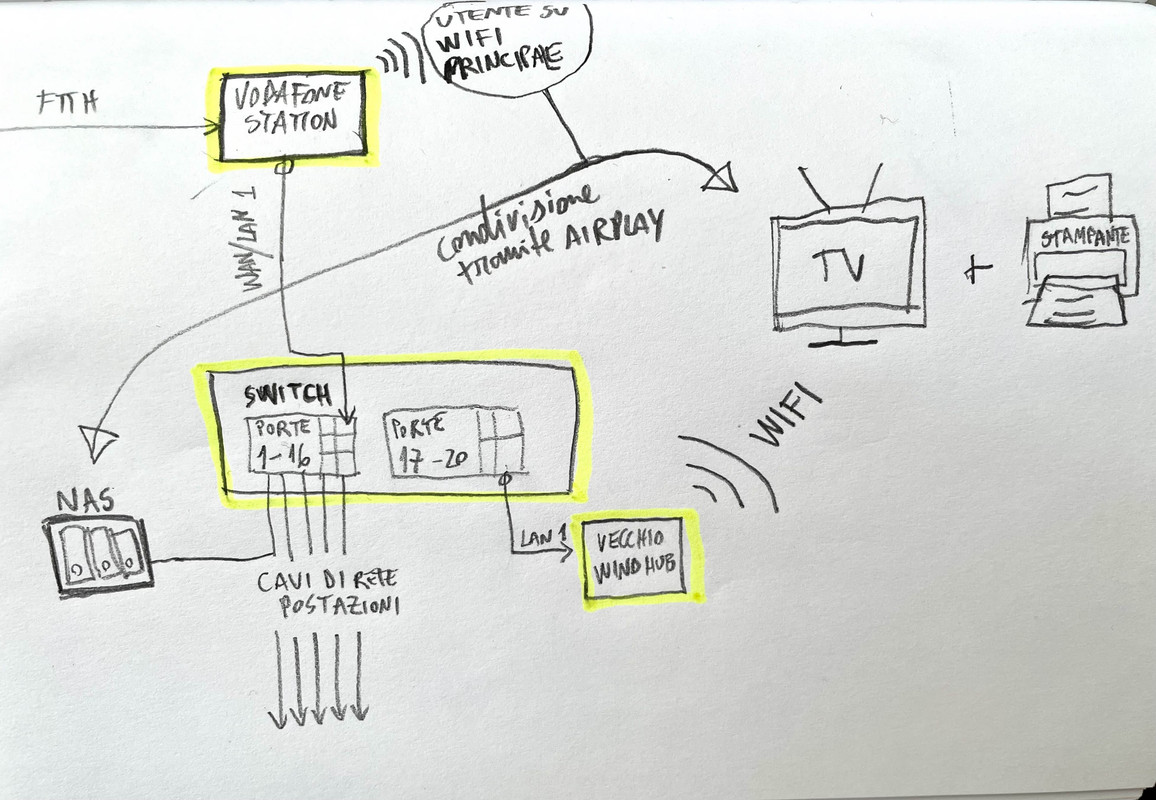 UTENTE SU
WIFI
PRINCIPALE
FTTH
VODAFONE
STATION
WAN/LAN 1
condivisione
tramite AIRPLAY
TV
+
STAMPANTE
SWITCH
PORTE
1-16
PORTE
17-20
WIFI
NAS
LAN 1
VECCHIO
WIND HUB
CAVI DI RETE
POSTAZIONI